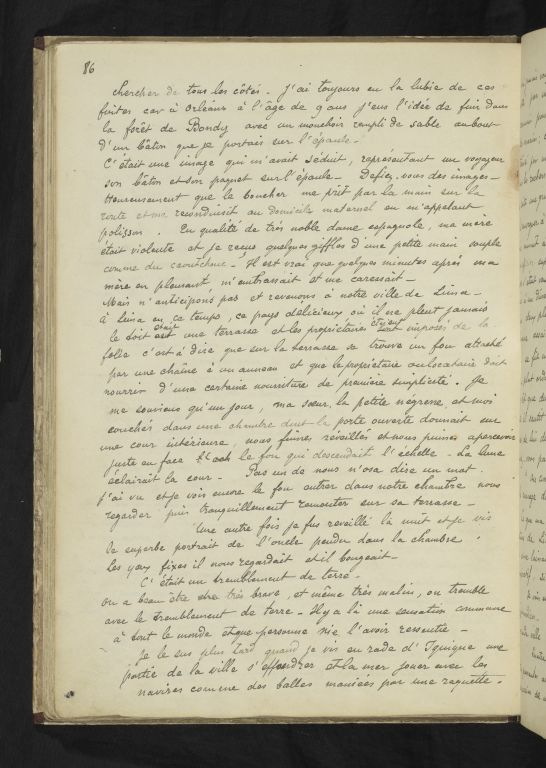 86
chercher de tous les côtés. J'ai toujours eu la lubie de ces
fuites car à Orléans à l'âge de 9 ans j'eus l'idée de fuir dans
la forêt de Bondy avec un mouchoir rempli de sable au bout
d'un bâton que je portais sur l'épaule -
C'était une image qui m'avait séduit, représentant un voyageur
son bâton et son paquet sur l'épaule - Défiez vous des images -
Heureusement que le boucher me prit par la main sur la
route et me reconduisit au domicile maternel en m'appelant
polisson. En qualité de très noble dame espagnole, ma mère
était violente et je reçus quelques giffles d'une petite main souple
comme du caoutchouc - Il est vrai que quelques minutes après ma
mère en pleurant, m'embrassait et me caressait -
Mais n'anticipons pas et revenons à notre ville de Lima -
à Lima en ce temps, ce pays délicieux où il ne pleut jamais
le toit était une terrasse et les propriétaires étaient imposés de la
folie c'est à dire que sur la terrasse se trouve un fou attaché
par une chaîne à un anneau et que le propriétaire ou locataire doit
nourrir d'une certaine nourriture de première simplicité. Je
me souviens qu'un jour, ma sœur, la petite négresse et moi
couchés dans une chambre dont la porte ouverte donnait sur
une cour intérieure, nous fûmes réveillés et nous pûmes apercevoir
juste en face le fou qui descendait l'échelle - La lune
éclairait la cour - Pas un de nous n'osa dire un mot.
j'ai vu et je vois encore le fou entrer dans notre chambre nous
regarder puis tranquillement remonter sur sa terrasse -
Une autre fois je fus réveillé la nuit et je vis
le superbe portrait de l'oncle pendu dans la chambre.
Les yeux fixes il nous regardait et il bougeait -
C'était un tremblement de terre -
On a beau être très brave, et même très malin, on tremble
avec le tremblement de terre - Il y a là une sensation commune
à tout le monde et que personne nie l'avoir ressentie -
Je le sus plus tard quand je vis en rade d'Iquique une
partie de la ville s'effondrer et la mer jouer avec les
navires comme des balles maniées par une raquette.